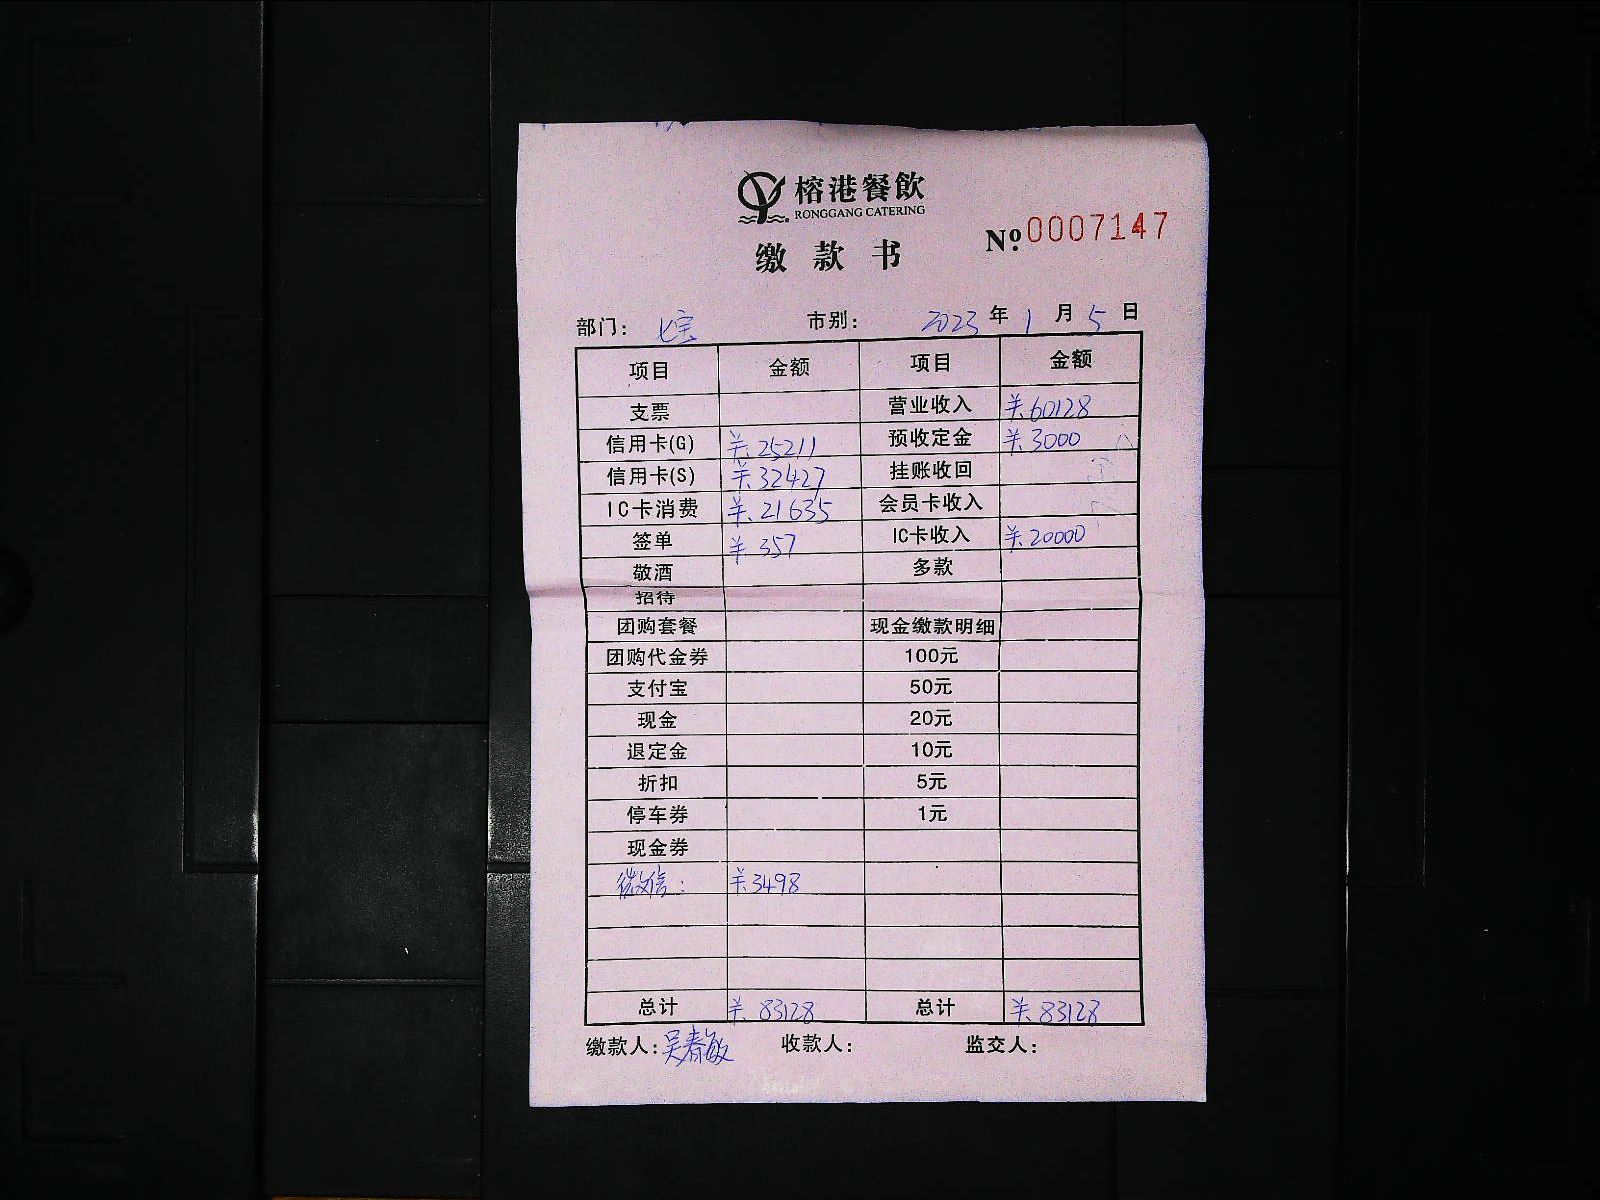 榕港餐飲
RONGGANG CATERING
缴款书
№ 0007147
部门： 七宝 市别： 2023 年 1 月 5 日
项目 金额 项目 金额
支票 营业收入 ¥.60128
信用卡(G) ¥.25211 预收定金 ¥.3000
信用卡(S) ¥.32427 挂账收回
IC卡消费 ¥.21635 会员卡收入
签单 ¥.357 IC卡收入 ¥.20000
敬酒 多款
招待
团购套餐 现金缴款明细
团购代金券 100元
支付宝 50元
现金 20元
退定金 10元
折扣 5元
停车券 1元
现金券
微信： ¥.3498
总计 ¥.83128 总计 ¥.83128
缴款人：吴春敏 收款人： 监交人：